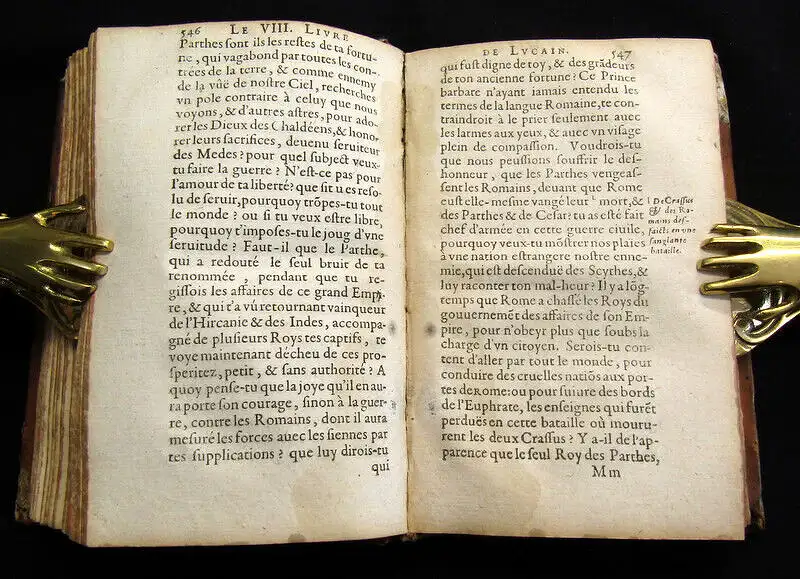 546 LE VIII. LIVRE
Parthes sont ils les restes de ta fortu-
ne, qui vagabond par toutes les con-
trées de la terre, & comme ennemy
de la vûë de nostre Ciel, recherches
vn pole contraire à celuy que nous
voyons, & d'autres astres, pour ado-
rer les Dieux des Chaldéens, & hono-
rer leurs sacrifices, deuenu seruiteur
des Medes? pour quel subject veux-
tu faire la guerre? N'est-ce pas pour
l'amour de ta liberté? que si tu es reso-
lu de seruir, pourquoy trõpes-tu tout
le monde? ou si tu veux estre libre,
pourquoy t'imposes-tu le joug d'vne
seruitude? Faut-il que le Parthe,
qui a redouté le seul bruit de ta
renommée, pendant que tu re-
gissois les affaires de ce grand Empi-
re, & qui t'a vû retourner vainqueur
de l'Hircanie & des Indes, accompa-
gné de plusieurs Roys tes captifs, te
voye maintenant décheu de ces pro-
speritez, petit, & sans authorité? A
quoy pense-tu que la joye qu'il en au-
ra porte son courage, sinon à la guer-
re, contre les Romains, dont il aura
mesuré les forces auec les siennes par
tes supplications? que luy dirois-tu
qui
DE LVCAIN. 547
qui fust digne de toy, & des grãdeurs
de ton ancienne fortune? Ce Prince
barbare n'ayant iamais entendu les
termes de la langue Romaine, te con-
traindroit à le prier seulement auec
les larmes aux yeux, & auec vn visage
plein de compassion. Voudrois-tu
que nous peussions souffrir le des-
honneur, que les Parthes vengeas-
sent les Romains, deuant que Rome
eust elle-mesme vangé leur ¹ mort, &
des Parthes & de Cesar? tu as esté fait
chef d'armée en cette guerre ciuile,
pourquoy veux-tu mõstrer nos plaies
à vne nation estrangere nostre enne-
mie, qui est descenduë des Scythes, &
luy raconter ton mal-heur? Il y a lõg-
temps que Rome a chassé les Roys du
gouuernemẽt des affaires de son Em-
pire, pour n'obeyr plus que soubs la
charge d'vn citoyen. Serois-tu con-
tent d'aller par tout le monde, pour
conduire des cruelles natiõs aux por-
tes de rome: ou pour suiure des bords
de l'Euphrate, les enseignes qui furẽt
perduës en cette bataille où mouru-
rent les deux Crassus? Y a-il de l'ap-
parence que le seul Roy des Parthes,
Mm
1 De Crassus
& des Ro-
mains des-
faicts en vne
sanglante
bataille.